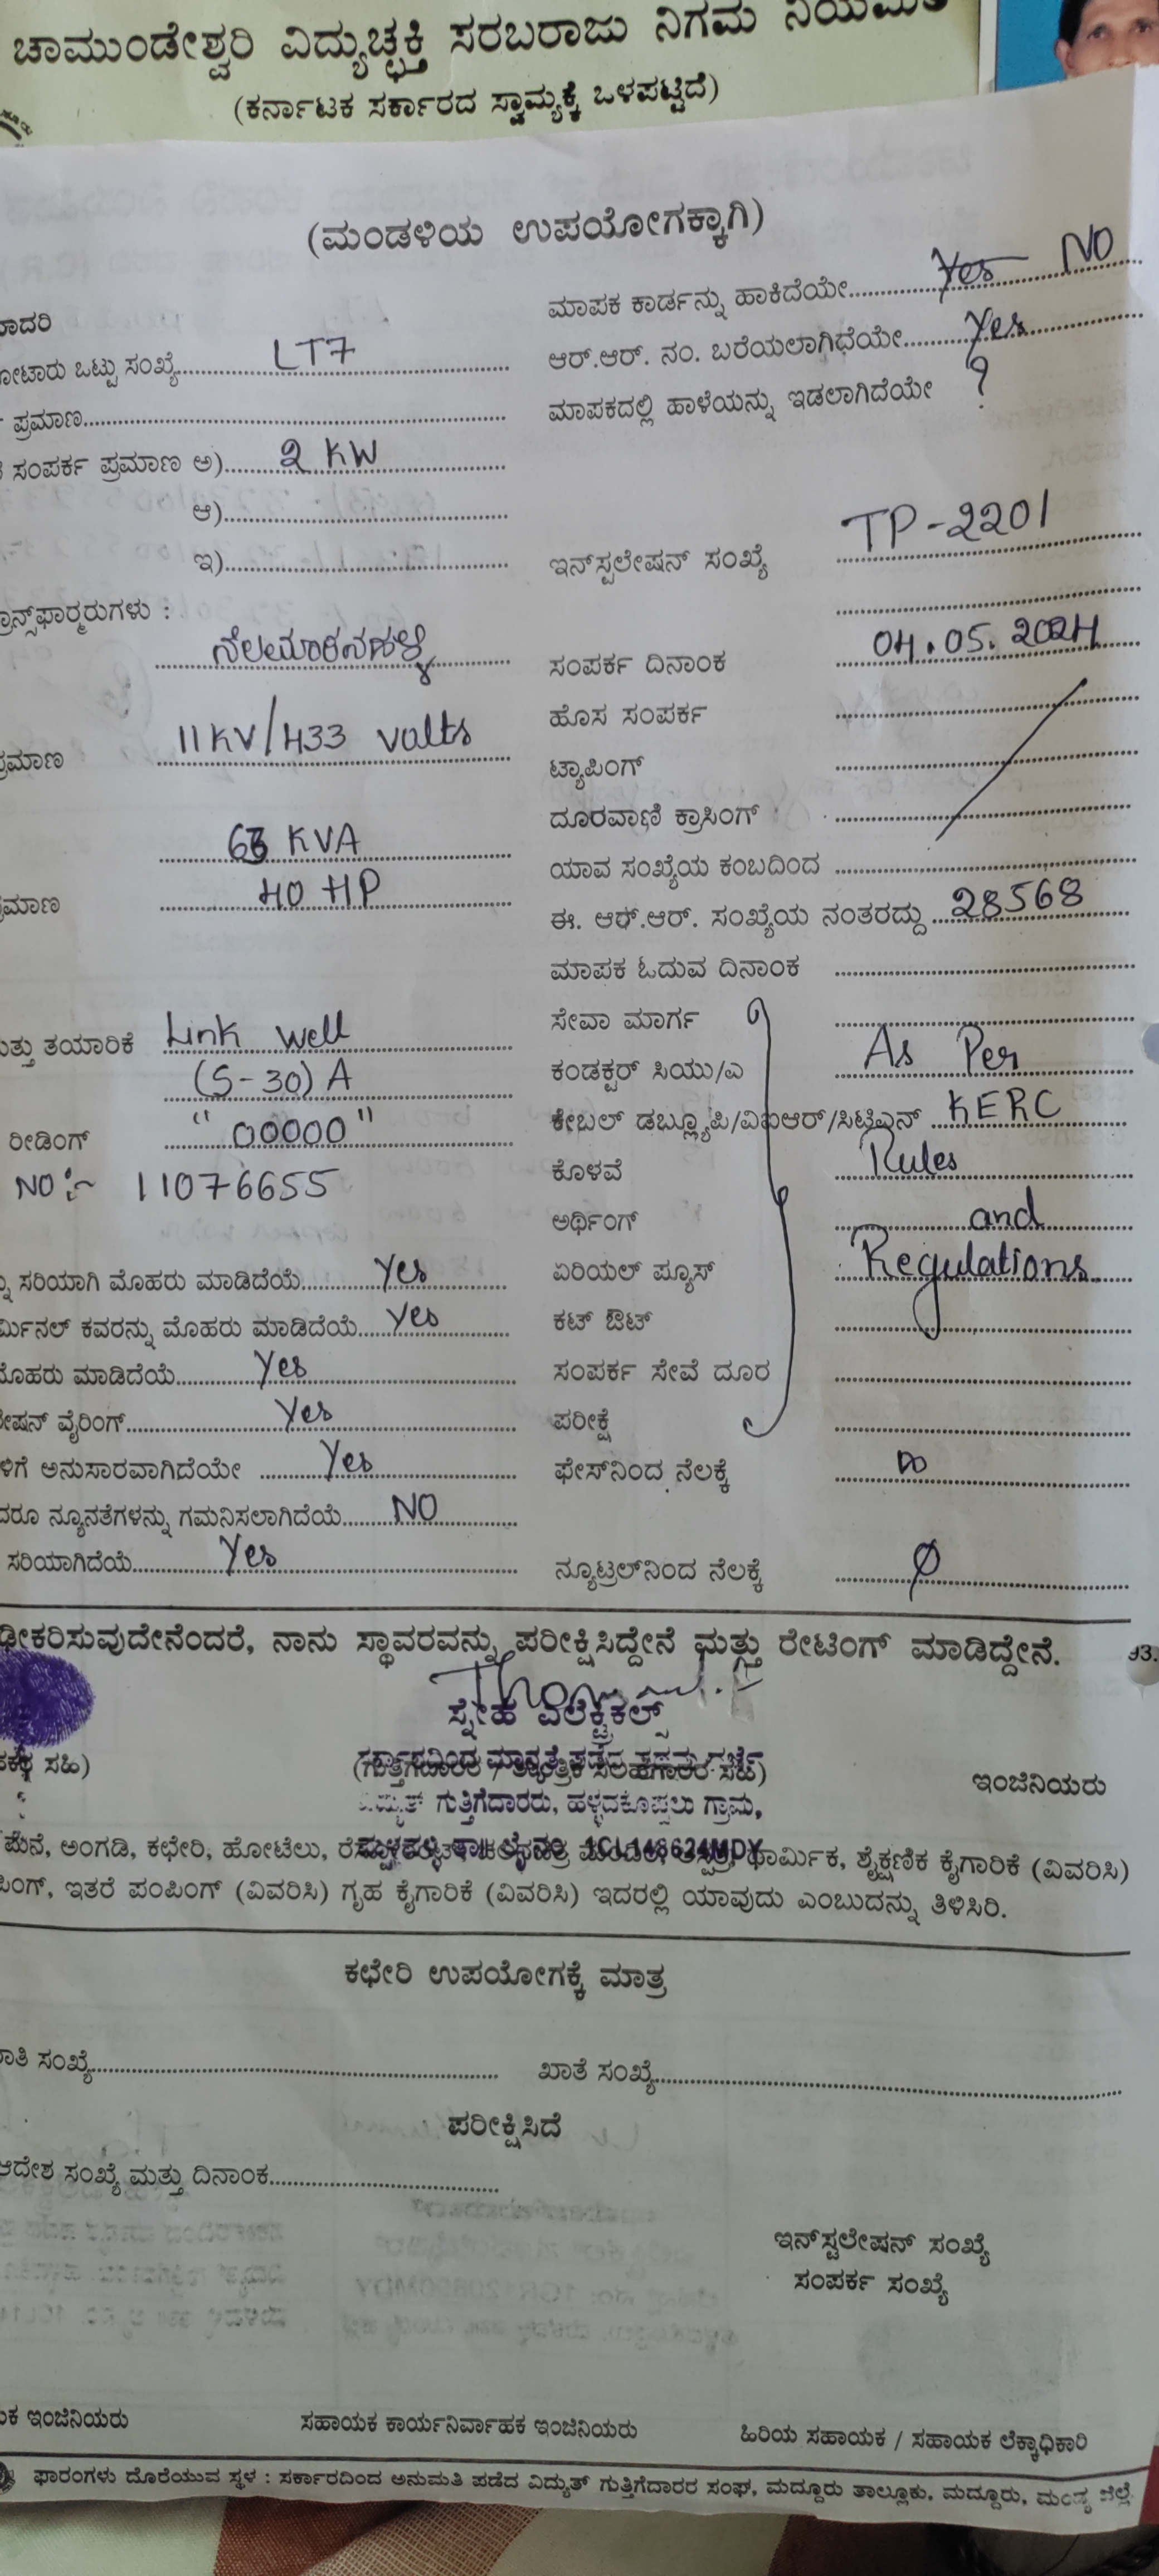 ಚಾಮುಂಡೇಶ್ವರಿ ವಿದ್ಯುಚ್ಛಕ್ತಿ ಸರಬರಾಜು ನಿಗಮ
(ಕರ್ನಾಟಕ ಸರ್ಕಾರದ ಸ್ವಾಮ್ಯಕ್ಕೆ ಒಳಪಟ್ಟಿದೆ)
(ಮಂಡಳಿಯ ಉಪಯೋಗಕ್ಕಾಗಿ)
ಒಟ್ಟು ಸಂಖ್ಯೆ LT7
ಪ್ರಮಾಣ
ಸಂಪರ್ಕ ಪ್ರಮಾಣ ಅ) 2 KW
ಆ)
ಇ)
11KV/433 volts
63 KVA
40 HP
ತಯಾರಿಕೆ Link well
(5-30) A
ರೀಡಿಂಗ್ "00000"
NO:- 11076655
ಸರಿಯಾಗಿ ಮೊಹರು ಮಾಡಿದೆಯೆ Yes
ಕವರನ್ನು ಮೊಹರು ಮಾಡಿದೆಯೆ Yes
ಮೊಹರು ಮಾಡಿದೆಯೆ Yes
ವೈರಿಂಗ್ Yes
ಅನುಸಾರವಾಗಿದೆಯೇ Yes
ನ್ಯೂನತೆಗಳನ್ನು ಗಮನಿಸಲಾಗಿದೆಯೆ NO
ಸರಿಯಾಗಿದೆಯೆ Yes
ಮಾಪಕ ಕಾರ್ಡನ್ನು ಹಾಕಿದೆಯೇ Yes NO
ಆರ್.ಆರ್. ನಂ. ಬರೆಯಲಾಗಿಧೆಯೇ Yes
ಮಾಪಕದಲ್ಲಿ ಹಾಳೆಯನ್ನು ಇಡಲಾಗಿದೆಯೇ ?
ಇನ್‌ಸ್ಪಲೇಷನ್ ಸಂಖ್ಯೆ TP-2201
ಸಂಪರ್ಕ ದಿನಾಂಕ 04.05.2024
ಹೊಸ ಸಂಪರ್ಕ
ಟ್ಯಾಪಿಂಗ್
ದೂರವಾಣಿ ಕ್ರಾಸಿಂಗ್
ಯಾವ ಸಂಖ್ಯೆಯ ಕಂಬದಿಂದ
ಈ. ಆರ್.ಆರ್. ಸಂಖ್ಯೆಯ ನಂತರದ್ದು 28568
ಮಾಪಕ ಓದುವ ದಿನಾಂಕ
ಸೇವಾ ಮಾರ್ಗ
ಕಂಡಕ್ಟರ್ ಸಿಯು/ಎ As Per
ಕೇಬಲ್ ಡಬ್ಲ್ಯೂಪಿ/ವಿಐಆರ್/ಸಿಟಿಎನ್ KERC
ಕೊಳವೆ Rules
ಅರ್ಥಿಂಗ್ and
ಏರಿಯಲ್ ಪ್ಯೂಸ್ Regulations.
ಕಟ್ ಔಟ್
ಸಂಪರ್ಕ ಸೇವೆ ದೂರ
ಪರೀಕ್ಷೆ
ಫೇಸ್‌ನಿಂದ ನೆಲಕ್ಕೆ ∞
ನ್ಯೂಟ್ರಲ್‌ನಿಂದ ನೆಲಕ್ಕೆ Ø
ನಾನು ಸ್ಥಾವರವನ್ನು ಪರೀಕ್ಷಿಸಿದ್ದೇನೆ ಮತ್ತು ರೇಟಿಂಗ್ ಮಾಡಿದ್ದೇನೆ.
ಸ್ನೇಹ ಎಲೆಕ್ಟ್ರಿಕಲ್ಸ್
ಸಹಿ)
ಇಂಜಿನಿಯರು
ಗುತ್ತಿಗೆದಾರರು, ಹಳ್ಳದಕೊಪ್ಪಲು ಗ್ರಾಮ,
1CL148624MDY
ಮನೆ, ಅಂಗಡಿ, ಕಛೇರಿ, ಹೋಟೆಲು, ಶೈಕ್ಷಣಿಕ ಕೈಗಾರಿಕೆ (ವಿವರಿಸಿ)
ಇತರೆ ಪಂಪಿಂಗ್ (ವಿವರಿಸಿ) ಗೃಹ ಕೈಗಾರಿಕೆ (ವಿವರಿಸಿ) ಇದರಲ್ಲಿ ಯಾವುದು ಎಂಬುದನ್ನು ತಿಳಿಸಿರಿ.
ಕಛೇರಿ ಉಪಯೋಗಕ್ಕೆ ಮಾತ್ರ
ಸಂಖ್ಯೆ ಖಾತೆ ಸಂಖ್ಯೆ
ಪರೀಕ್ಷಿಸಿದೆ
ಆದೇಶ ಸಂಖ್ಯೆ ಮತ್ತು ದಿನಾಂಕ
ಇನ್‌ಸ್ಟಲೇಷನ್ ಸಂಖ್ಯೆ
ಸಂಪರ್ಕ ಸಂಖ್ಯೆ
ಇಂಜಿನಿಯರು ಸಹಾಯಕ ಕಾರ್ಯನಿರ್ವಾಹಕ ಇಂಜಿನಿಯರು ಹಿರಿಯ ಸಹಾಯಕ / ಸಹಾಯಕ ಲೆಕ್ಕಾಧಿಕಾರಿ
ಫಾರಂಗಳು ದೊರೆಯುವ ಸ್ಥಳ : ಸರ್ಕಾರದಿಂದ ಅನುಮತಿ ಪಡೆದ ವಿದ್ಯುತ್ ಗುತ್ತಿಗೆದಾರರ ಸಂಘ, ಮದ್ದೂರು ತಾಲ್ಲೂಕು, ಮದ್ದೂರು, ಮಂಡ್ಯ ಜಿಲ್ಲೆ